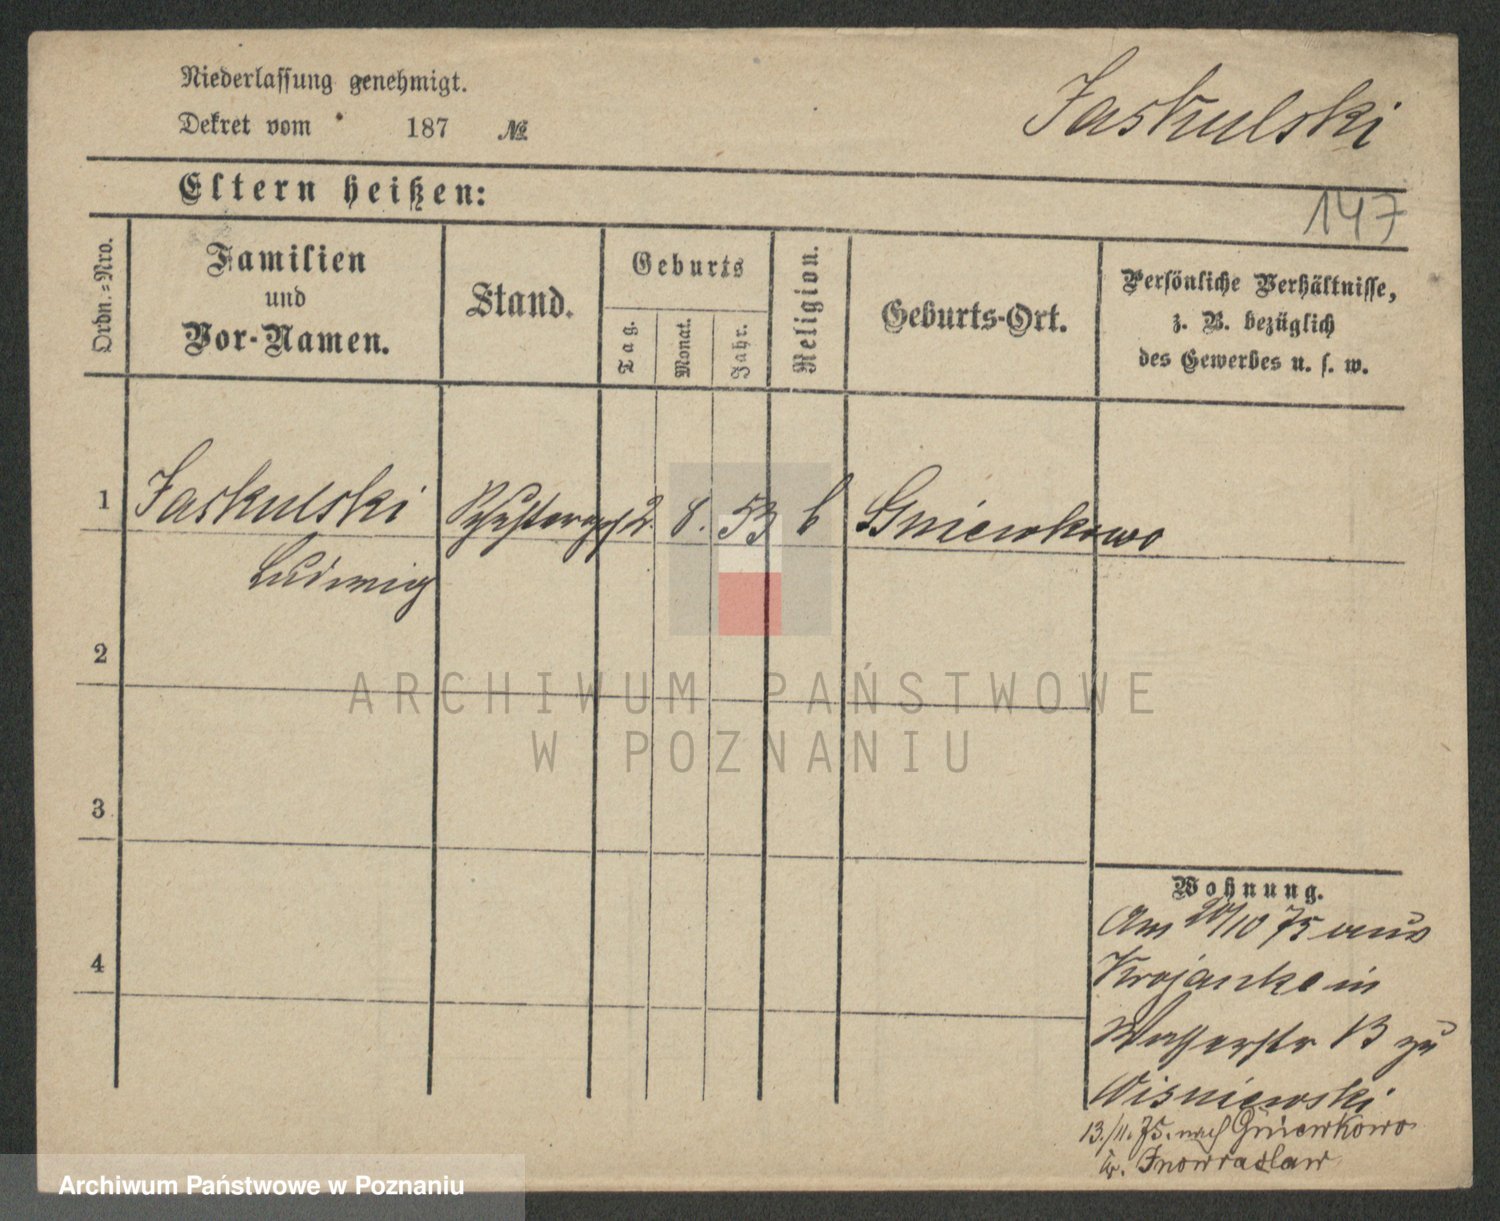 Niederlassung genehmigt.
Dekret vom 187 №
Jaskulski
Eltern heißen:
147
Ordn.-Nro.
Familien
und
Vor-Namen.
Stand.
Geburts
Tag.
Monat.
Jahr.
Religion.
Geburts-Ort.
Persönliche Verhältnisse,
z. B. bezüglich
des Gewerbes u. s. w.
1 Jaskulski 2. 8. 53 Gniewkowo
Ludwig
2
3
4
Wohnung.
Am 20/10 75 aus
Krojanke in
Wasserstr 13 zu
Wisniewski
13./11. 75. nach Gniewkowo
Kr. Inowraclaw
ARCHIWUM PAŃSTWOWE
W POZNANIU
Archiwum Państwowe w Poznaniu